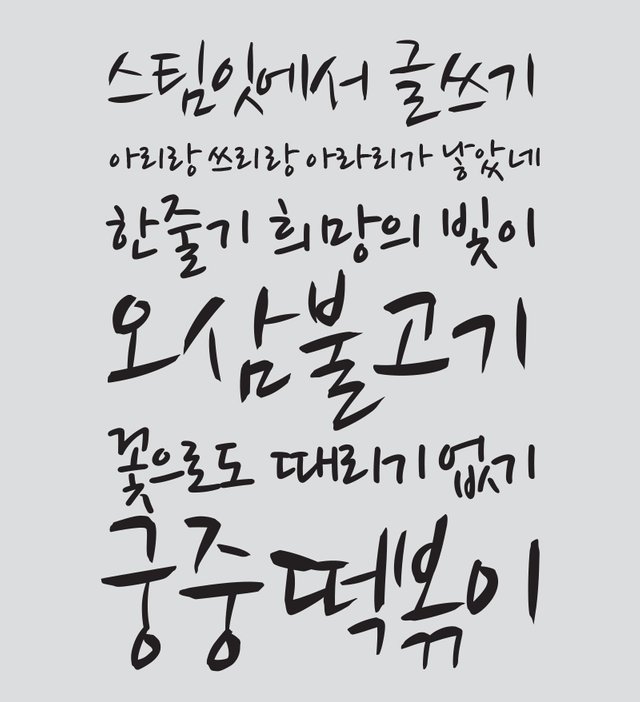 스팀잇에서 글쓰기
아리랑 쓰리랑 아라리가 낳았네
한줄기 희망의 빛이
오삼불고기
꽃으로도 때리기 없기
궁중 떡볶이